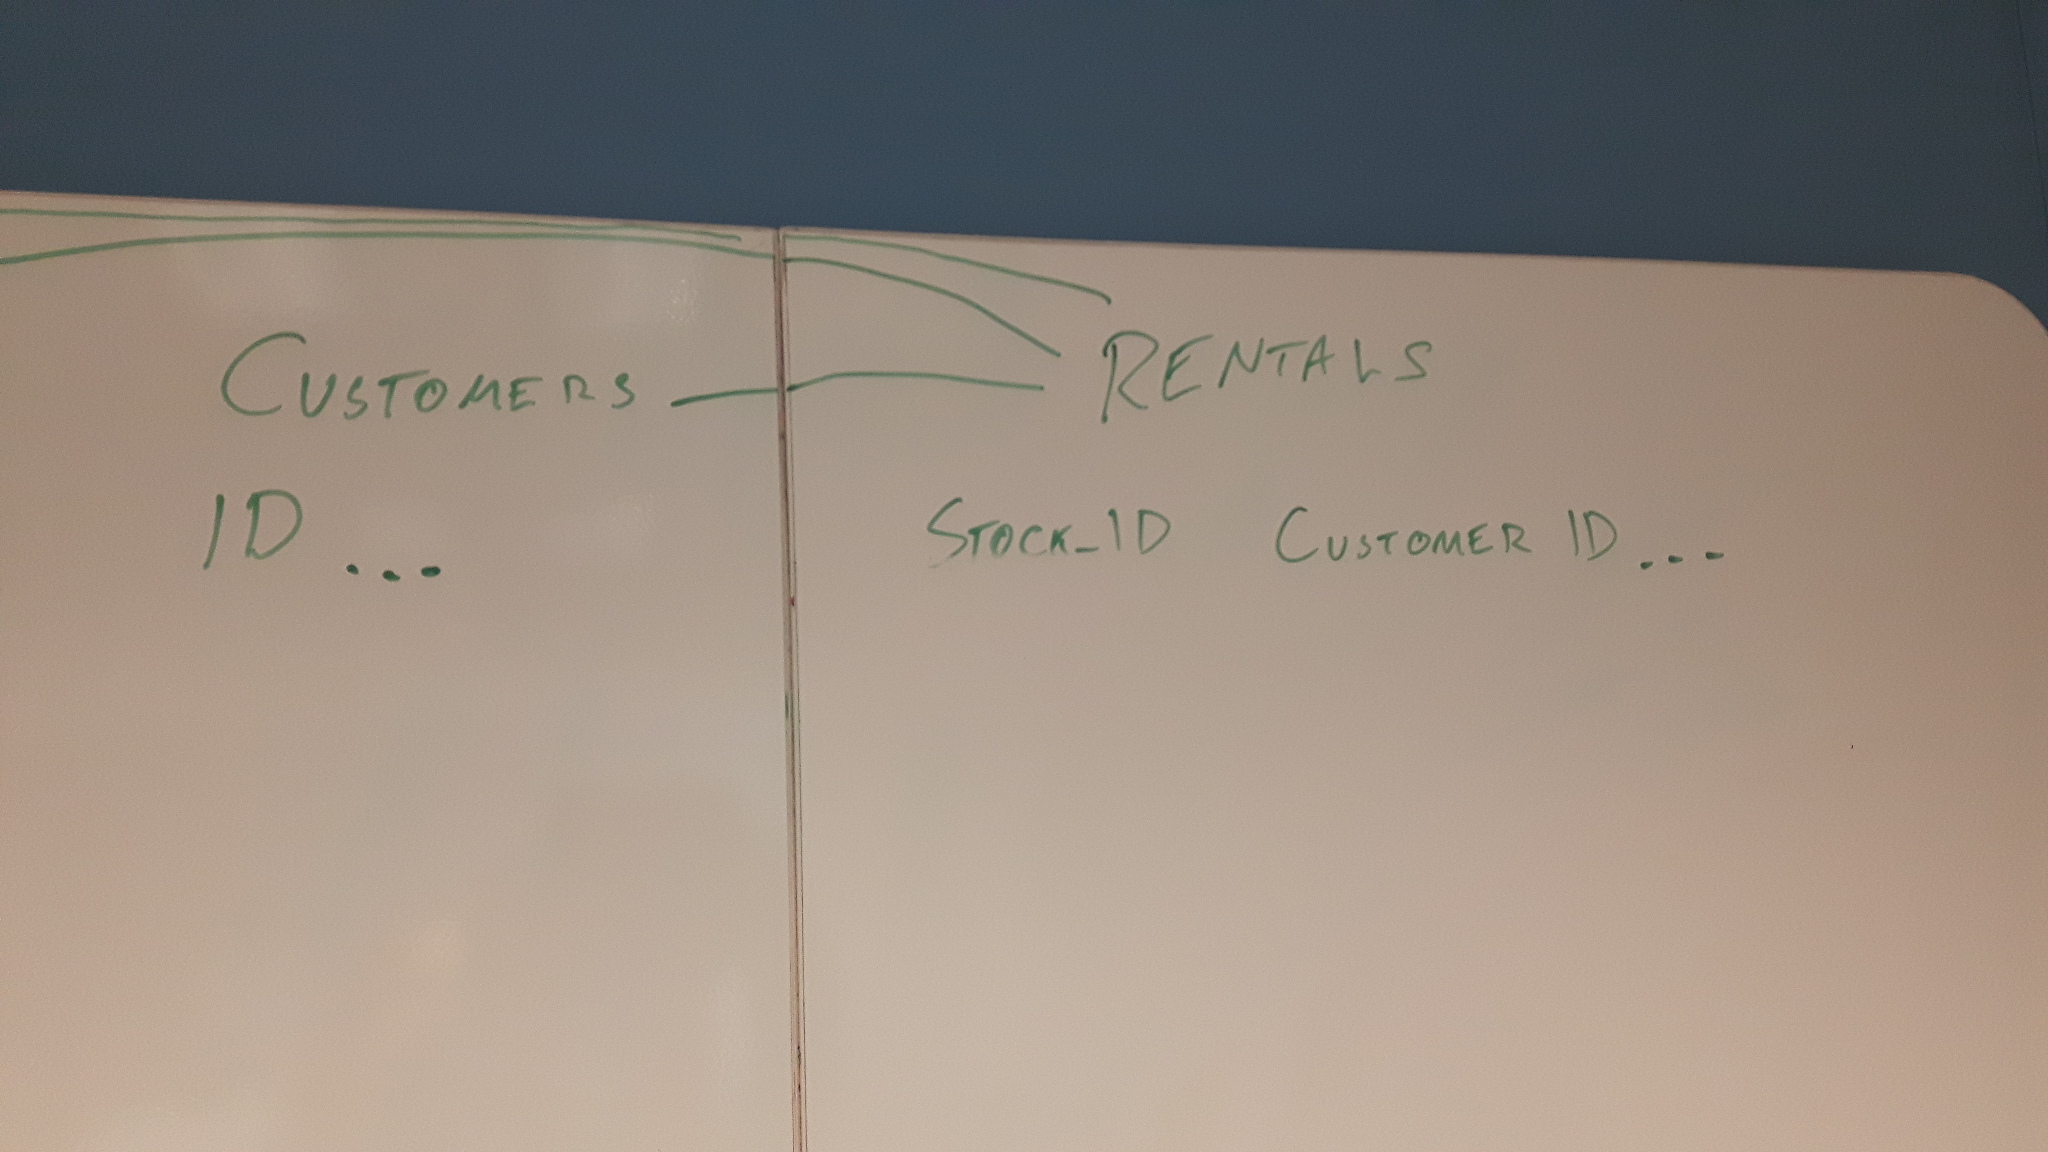 CUSTOMERS
ID ...
RENTALS
STOCK_ID CUSTOMER ID...